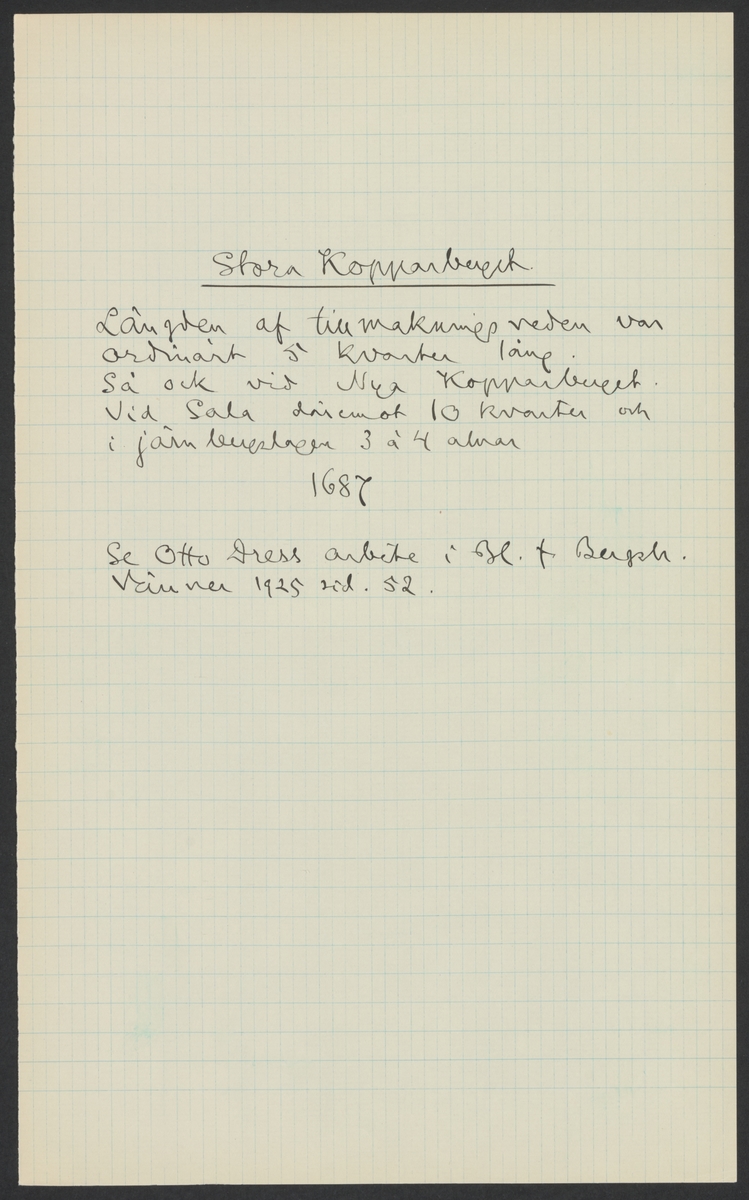 Stora Kopparberget.
Längden af tillmakningsveden var
ordinärt 5 kvarter lång.
Så ock vid Nya Kopparberget.
Vid Sala däremot 10 kvarter och
i järnbergslagen 3 à 4 alnar
1687
Se Otto Dress arbete i Bl. f Bergsh.
Vänner 1925 sid. 52.